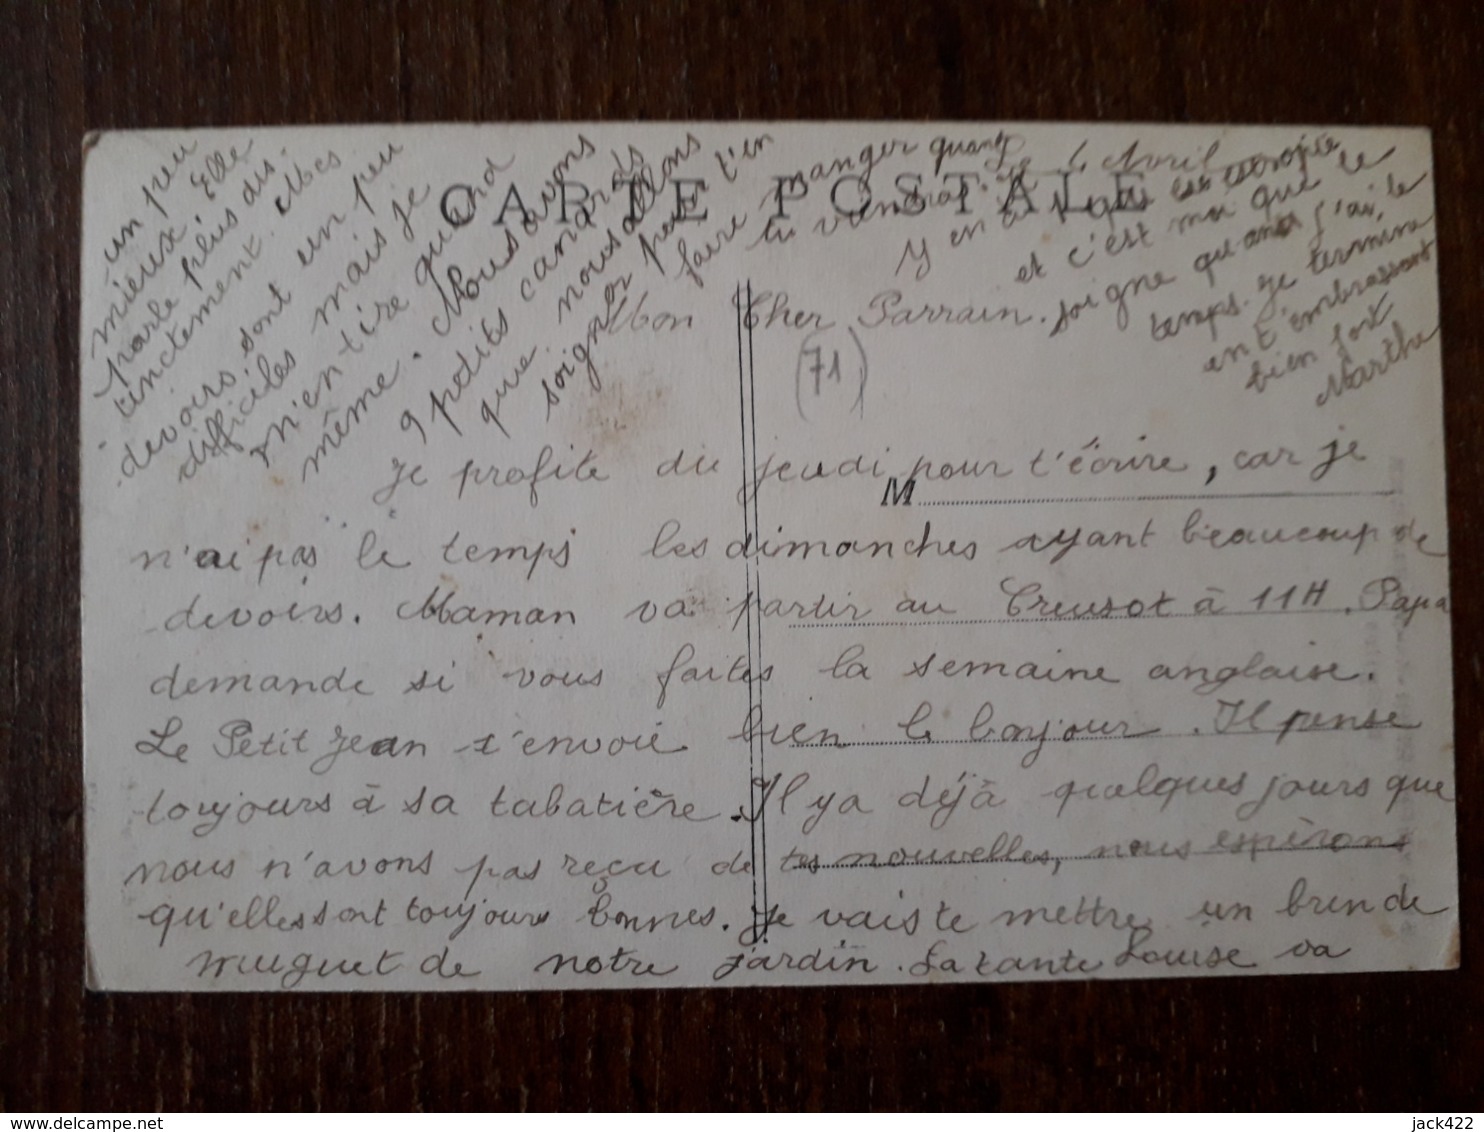 CARTE POSTALE
Avril
Mon Cher Parrain.
(71)
Je profite du jeudi pour t'écrire, car je
M
n'ai pas le temps les dimanches ayant beaucoup de
devoirs. Maman va partir au Creusot à 11H. Papa
demande si vous faites la semaine anglaise.
Le Petit Jean t'envoie bien le bonjour. Il pense
toujours à sa tabatière. Il y a déjà quelques jours que
nous n'avons pas reçu de tes nouvelles, nous espérons
qu'elles sont toujours bonnes. Je vais te mettre un brin de
muguet de notre jardin. La tante Louise va
un peu
mieux. Elle
parle plus dis-
tinctement. Mes
devoirs sont un peu
difficiles mais je
m'en tire quand
même. Nous avons
9 petits canards
que nous allons
soigner pour t'en
faire manger quant
tu viendra.
Y en a 1 qui est estropiée
et c'est moi que le
soigne quand j'ai le
temps. Je termine
en t'embrassant
bien fort
Marthe
jack422